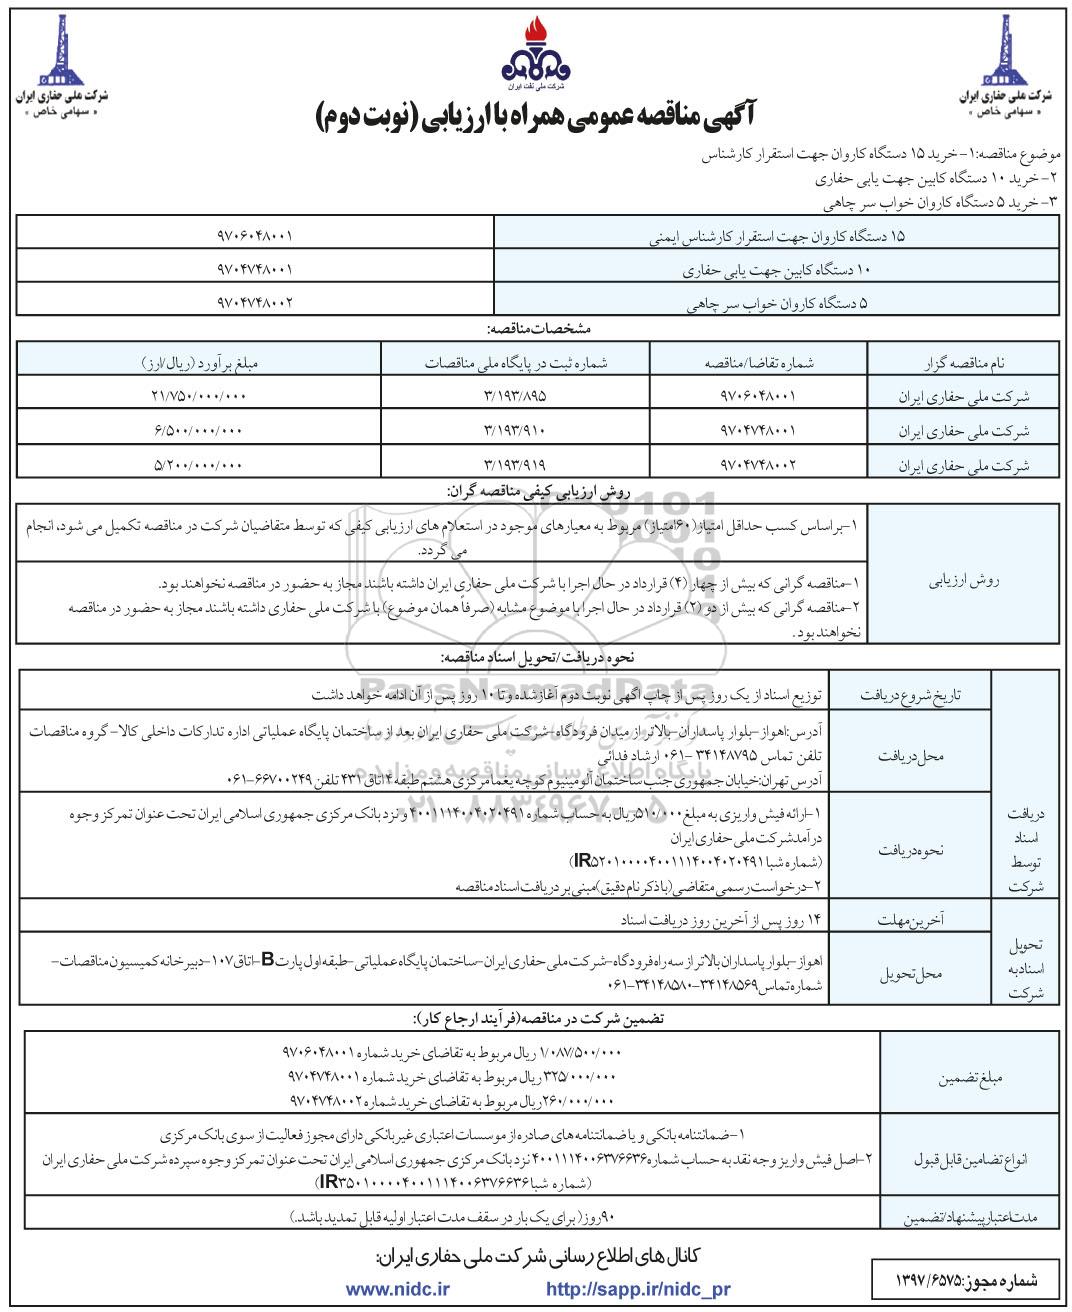 شرکت ملی حفاری ایران
« سهامی خاص »
شرکت ملی نفت ایران
شرکت ملی حفاری ایران
« سهامی خاص »
آگهی مناقصه عمومی همراه با ارزیابی (نوبت دوم)
موضوع مناقصه:۱- خرید ۱۵ دستگاه کاروان جهت استقرار کارشناس
۲- خرید ۱۰ دستگاه کابین جهت یابی حفاری
۳- خرید ۵ دستگاه کاروان خواب سر چاهی
۱۵ دستگاه کاروان جهت استقرار کارشناس ایمنی ۹۷۰۶۰۴۸۰۰۱
۱۰ دستگاه کابین جهت یابی حفاری ۹۷۰۴۷۴۸۰۰۱
۵ دستگاه کاروان خواب سر چاهی ۹۷۰۴۷۴۸۰۰۲
مشخصات مناقصه:
نام مناقصه گزار شماره تقاضا/مناقصه شماره ثبت در پایگاه ملی مناقصات مبلغ برآورد (ریال/ارز)
شرکت ملی حفاری ایران ۹۷۰۶۰۴۸۰۰۱ ۳/۱۹۳/۸۹۵ ۲۱/۷۵۰/۰۰۰/۰۰۰
شرکت ملی حفاری ایران ۹۷۰۴۷۴۸۰۰۱ ۳/۱۹۳/۹۱۰ ۶/۵۰۰/۰۰۰/۰۰۰
شرکت ملی حفاری ایران ۹۷۰۴۷۴۸۰۰۲ ۳/۱۹۳/۹۱۹ ۵/۲۰۰/۰۰۰/۰۰۰
روش ارزیابی کیفی مناقصه گران:
روش ارزیابی
۱-بر اساس کسب حداقل امتیاز(۶۰امتیاز) مربوط به معیارهای موجود در استعلام های ارزیابی کیفی که توسط متقاضیان شرکت در مناقصه تکمیل می شود، انجام
می گردد.
۱-مناقصه گرانی که بیش از چهار (۴) قرارداد در حال اجرا با شرکت ملی حفاری ایران داشته باشند مجاز به حضور در مناقصه نخواهند بود.
۲-مناقصه گرانی که بیش از دو (۲) قرارداد در حال اجرا با موضوع مشابه (صرفاً همان موضوع) با شرکت ملی حفاری داشته باشند مجاز به حضور در مناقصه
نخواهند بود.
نحوه دریافت/تحویل اسناد مناقصه:
دریافت
اسناد
توسط
شرکت
تاریخ شروع دریافت
توزیع اسناد از یک روز پس از چاپ آگهی نوبت دوم آغاز شده و تا ۱۰ روز پس از آن ادامه خواهد داشت
محل دریافت
آدرس:اهواز-بلوار پاسداران-بالاتر از میدان فرودگاه-شرکت ملی حفاری ایران بعد از ساختمان پایگاه عملیاتی اداره تدارکات داخلی کالا-گروه مناقصات
تلفن تماس ۳۴۱۴۸۷۹۵ -۰۶۱ ارشاد فدائی
آدرس تهران:خیابان جمهوری جنب ساختمان آلومینیوم کوچه یغما مرکزی هشتم طبقه ۴ اتاق ۴۳۱ تلفن ۶۶۷۰۰۲۴۹-۰۶۱
نحوه دریافت
۱-ارائه فیش واریزی به مبلغ ۵۱۰/۰۰۰ریال به حساب شماره ۴۰۰۱۱۱۴۰۰۴۰۲۰۴۹۱ و نزد بانک مرکزی جمهوری اسلامی ایران تحت عنوان تمرکز وجوه
درآمد شرکت ملی حفاری ایران
(شماره شبا IR۵۲۰۱۰۰۰۰۴۰۰۱۱۱۴۰۰۴۰۲۰۴۹۱)
۲-درخواست رسمی متقاضی(با ذکر نام دقیق)مبنی بر دریافت اسناد مناقصه
تحویل
اسناد به
شرکت
آخرین مهلت
۱۴ روز پس از آخرین روز دریافت اسناد
محل تحویل
اهواز-بلوار پاسداران بالاتر از سه راه فرودگاه-شرکت ملی حفاری ایران-ساختمان پایگاه عملیاتی-طبقه اول پارت B-اتاق ۱۰۷-دبیرخانه کمیسیون مناقصات-
شماره تماس ۳۴۱۴۸۵۶۹-۳۴۱۴۸۵۸۰-۰۶۱
تضمین شرکت در مناقصه(فرآیند ارجاع کار):
مبلغ تضمین
۱/۰۸۷/۵۰۰/۰۰۰ ریال مربوط به تقاضای خرید شماره ۹۷۰۶۰۴۸۰۰۱
۳۲۵/۰۰۰/۰۰۰ریال مربوط به تقاضای خرید شماره ۹۷۰۴۷۴۸۰۰۱
۲۶۰/۰۰۰/۰۰۰ریال مربوط به تقاضای خرید شماره ۹۷۰۴۷۴۸۰۰۲
انواع تضامین قابل قبول
۱-ضمانتنامه بانکی و یا ضمانتنامه های صادره از موسسات اعتباری غیربانکی دارای مجوز فعالیت از سوی بانک مرکزی
۲-اصل فیش واریز وجه نقد به حساب شماره ۴۰۰۱۱۱۴۰۰۶۳۷۶۶۳۶ نزد بانک مرکزی جمهوری اسلامی ایران تحت عنوان تمرکز وجوه سپرده شرکت ملی حفاری ایران
(شماره شبا IR۳۵۰۱۰۰۰۰۴۰۰۱۱۱۴۰۰۶۳۷۶۶۳۶)
مدت اعتبار پیشنهاد/تضمین
۹۰روز( برای یک بار در سقف مدت اعتبار اولیه قابل تمدید باشد.)
کانال های اطلاع رسانی شرکت ملی حفاری ایران:
www.nidc.ir http://sapp.ir/nidc_pr
شماره مجوز:۱۳۹۷/۶۵۷۵
ParsNamadData
پایگاه اطلاع رسانی مناقصه و مزایده
۰۲۱-۸۸۳۴۹۶۷۰-۵